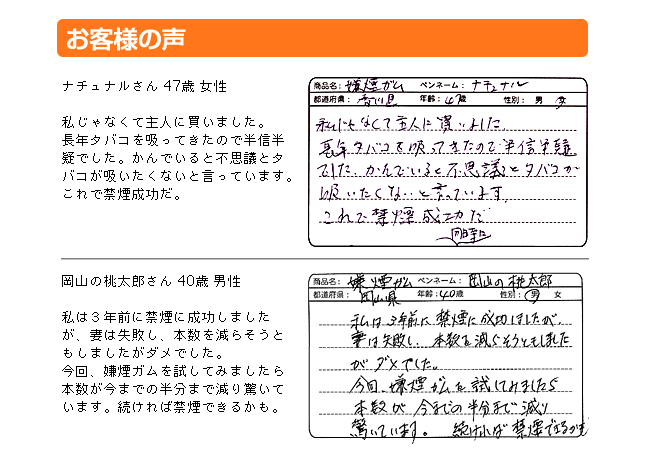 お客様の声
ナチュナルさん 47歳 女性
私じゃなくて主人に買いました。
長年タバコを吸ってきたので半信半
疑でした。かんでいると不思議とタ
バコが吸いたくないと言っています。
これで禁煙成功だ。
商品名: 嫌煙ガム ペンネーム: ナチュナル
都道府県: 香川県 年齢: 47歳 性別: 男 女
私じゃなくて主人に買いました。
長年タバコを吸ってきたので半信半疑
でした。かんでいると不思議とタバコが
吸いたくないと言っています。
これで禁煙成功だ
岡山の桃太郎さん 40歳 男性
私は３年前に禁煙に成功しました
が、妻は失敗し、本数を減らそうと
もしましたがダメでした。
今回、嫌煙ガムを試してみましたら
本数が今までの半分まで減り驚いて
います。続ければ禁煙できるかも。
商品名: 嫌煙ガム ペンネーム: 岡山の桃太郎
都道府県: 岡山県 年齢: 40歳 性別: 男 女
私は3年前に禁煙に成功しましたが、
妻は失敗し、本数を減らそうともしました
がダメでした。
今回、嫌煙ガムを試してみましたら
本数が今までの半分まで減り
驚いています。 続ければ禁煙できるかも